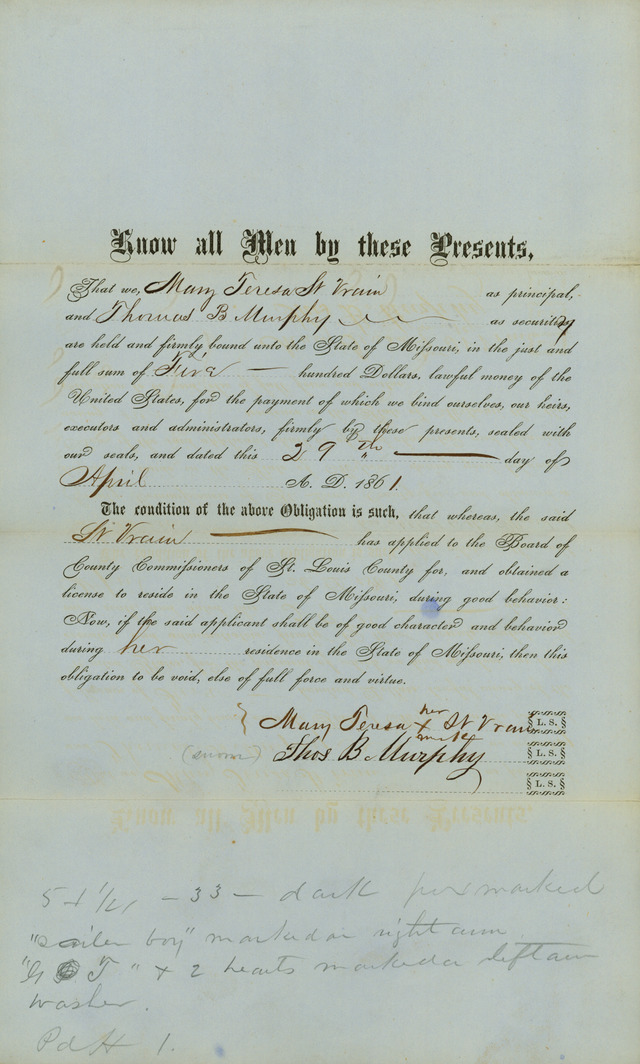 Know all Men by these Presents,
That we, Mary Teresa St Vrain as principal,
and Thomas B Murphy as security
are held and firmly bound unto the State of Missouri, in the just and
full sum of Five hundred Dollars, lawful money of the
United States, for the payment of which we bind ourselves, our heirs,
executors and administrators, firmly by these presents, sealed with
our seals, and dated this 29th day of
April A. D. 1861.
The condition of the above Obligation is such, that whereas, the said
St Vrain has applied to the Board of
County Commissioners of St. Louis County for, and obtained a
license to reside in the State of Missouri, during good behavior:
Now, if the said applicant shall be of good character and behavior
during her residence in the State of Missouri, then this
obligation to be void, else of full force and virtue.
her
Mary Teresa x St Vrain L. S.
mark
(sworn) Thos B Murphy L. S.
L. S.
5 - 33 - dark pox marked
"sailer boy" marked on right arm
T" + 2 hearts marked on left arm
washer.
Pd H 1.